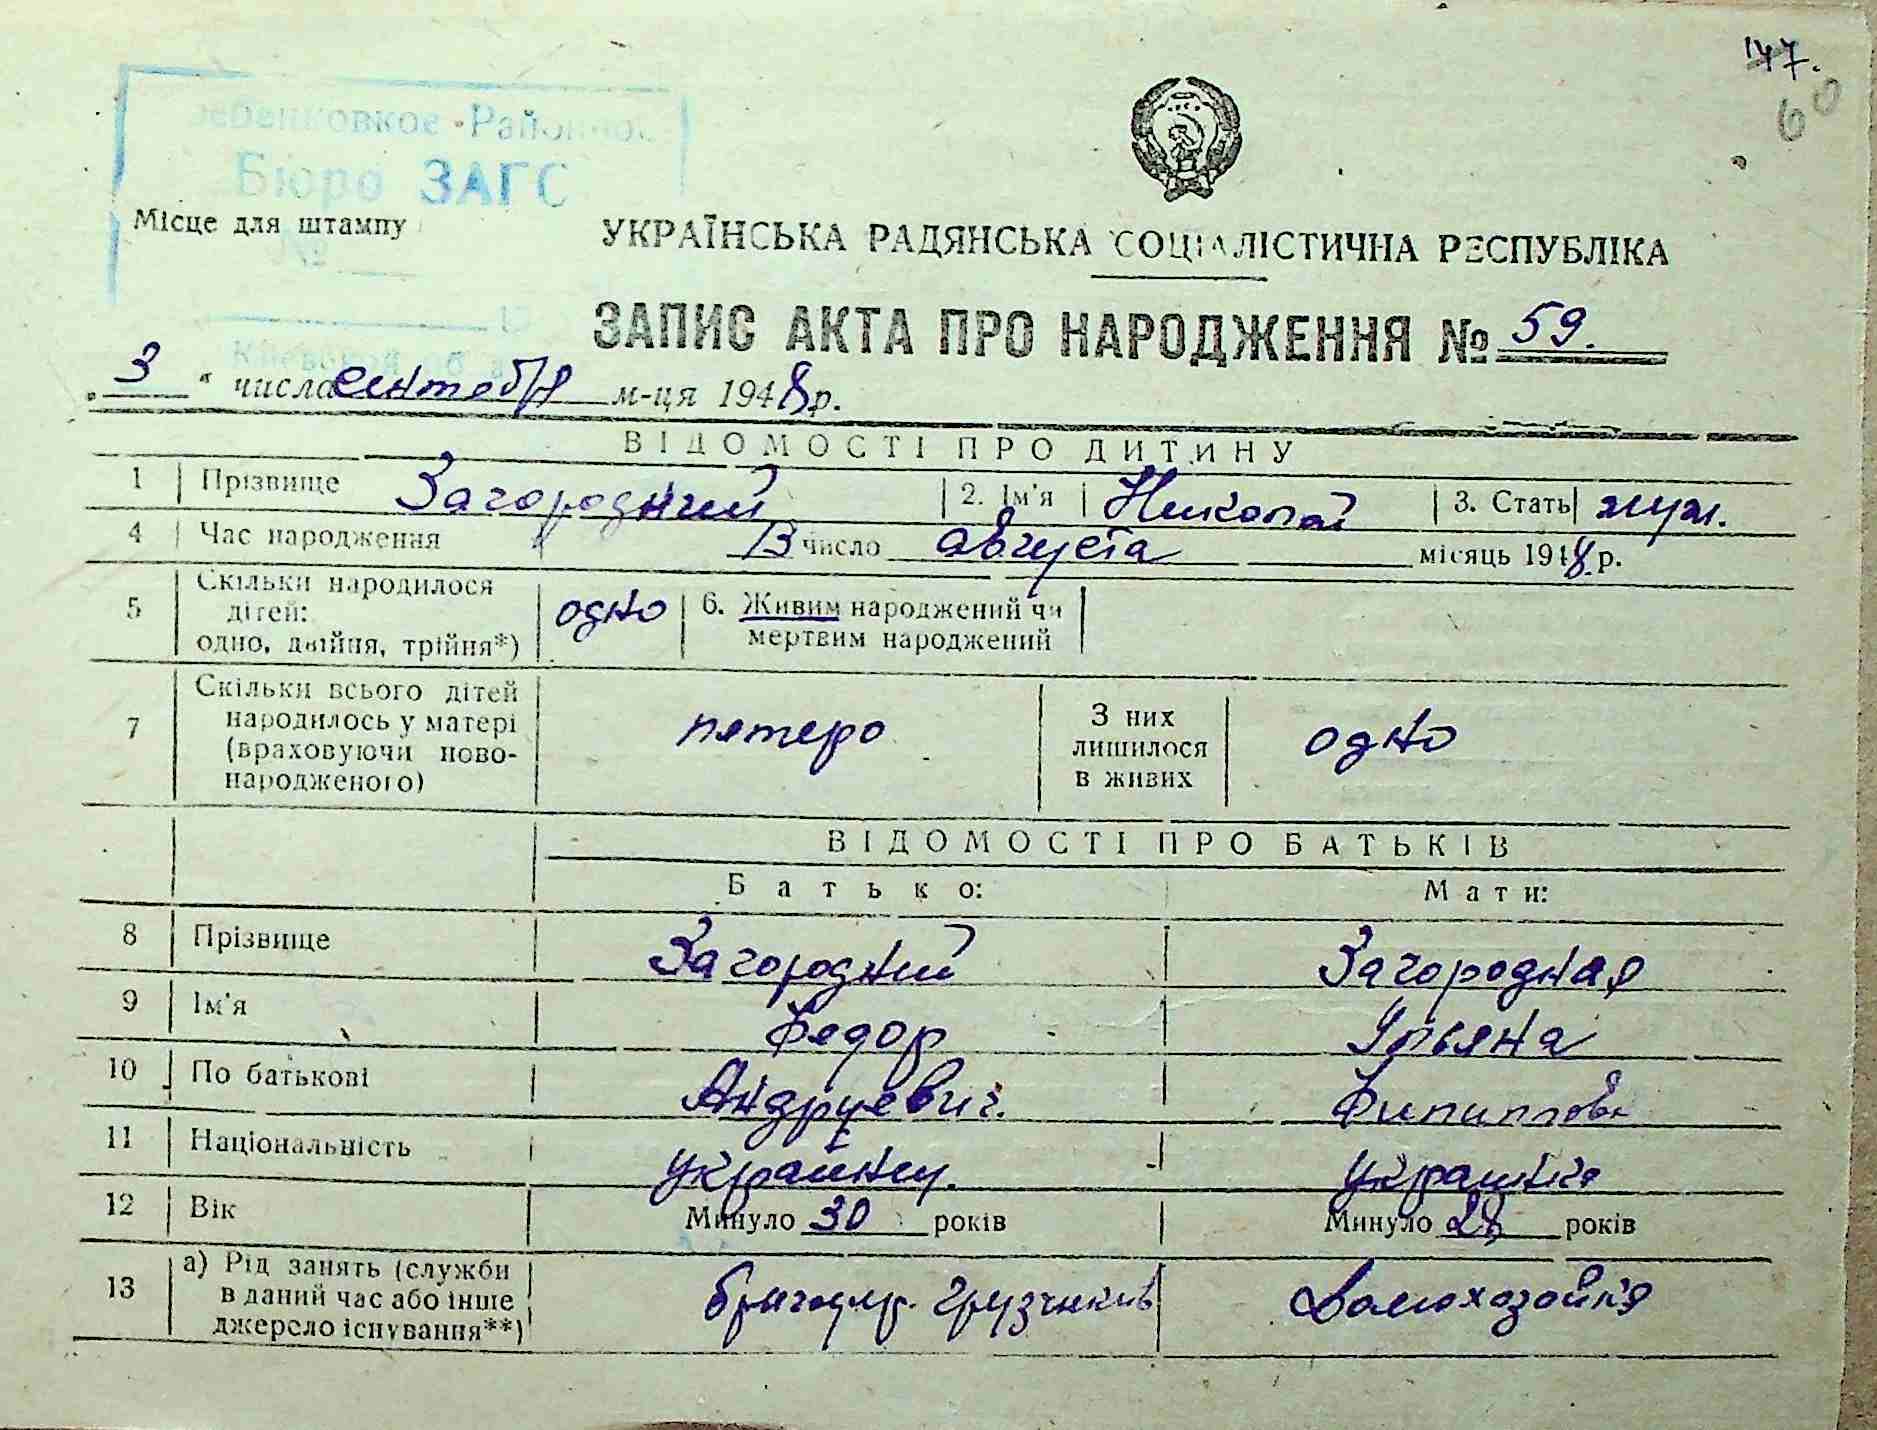 147.
60
Районное
Бюро ЗАГС
Місце для штампу
№
УКРАЇНСЬКА РАДЯНСЬКА СОЦІАЛІСТИЧНА РЕСПУБЛІКА
ЗАПИС АКТА ПРО НАРОДЖЕННЯ № 59.
Киевской об
„ 3 " числа сентября м-ця 1948 р.
ВІДОМОСТІ ПРО ДИТИНУ
1 Прізвище Загородний 2. Ім'я Николай 3. Стать муж.
4 Час народження 13 число августа місяць 1948 р.
5 Скільки народилося
дітей:
одно, двійня, трійня*) одно 6. Живим народжений чи
мертвим народжений
7 Скільки всього дітей
народилось у матері
(враховуючи ново-
народженого) пятеро З них
лишилося
в живих одно
ВІДОМОСТІ ПРО БАТЬКІВ
Батько: Мати:
8 Прізвище Загородний Загородная
9 Ім'я Федор Ульяна
10 По батькові Андреевич. Филипповн
11 Національність украинец. украинка
12 Вік Минуло 30 років Минуло 28 років
13 а) Рід занять (служби
в даний час або інше
джерело існування**) бригадир. грузчиков Домохозяйка